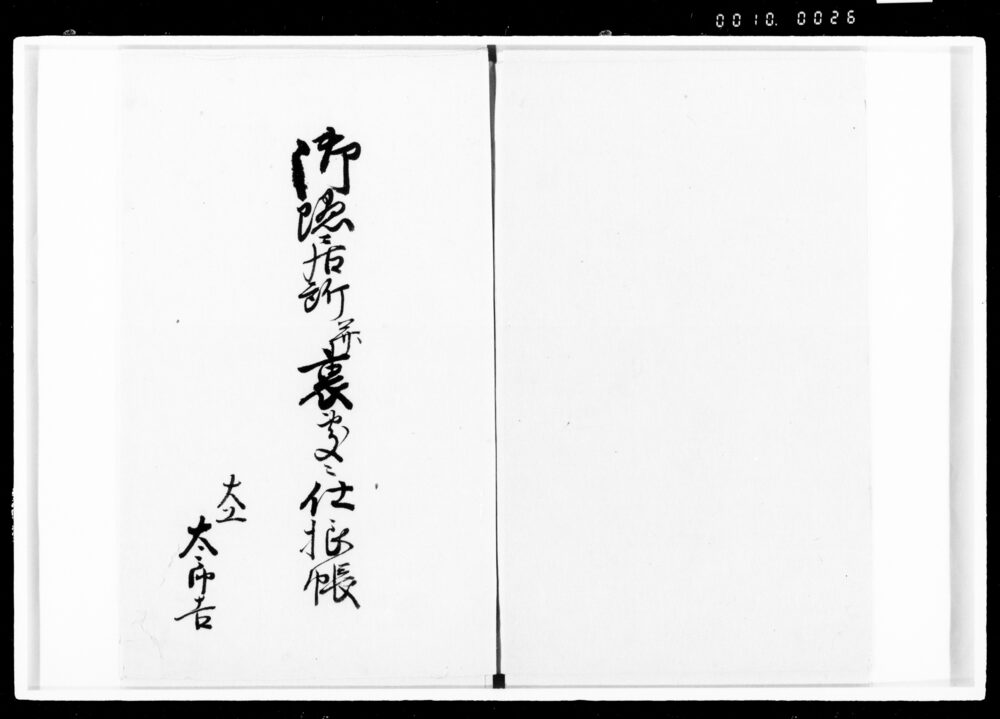 0010. 0026
御隠居所并裏変ニ仕拵帳
大工
太郎吉